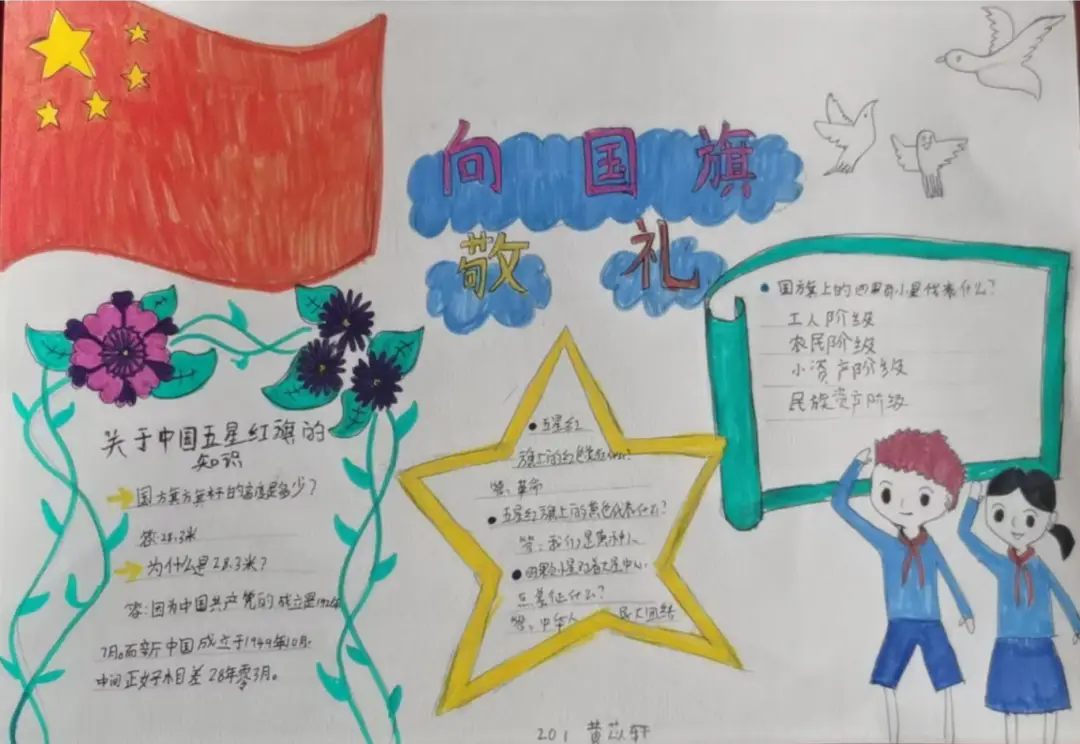 向国旗
敬礼
关于中国五星红旗的
知识
国旗旗杆的高度是多少?
答:28.3米
为什么是28.3米?
答:因为中国共产党的成立是1921年
7月。而新中国成立于1949年10月。
中间正好相差28年零3月。
五星红
旗上的红色代表什么?
答:革命
五星红旗上的黄色代表什么?
答:我们是黄种人
四颗小星对着大星中心
点象征什么?
答:中华人 民大团结
国旗上的四颗小星代表什么?
工人阶级
农民阶级
小资产阶级
民族资产阶级
201 黄苡轩